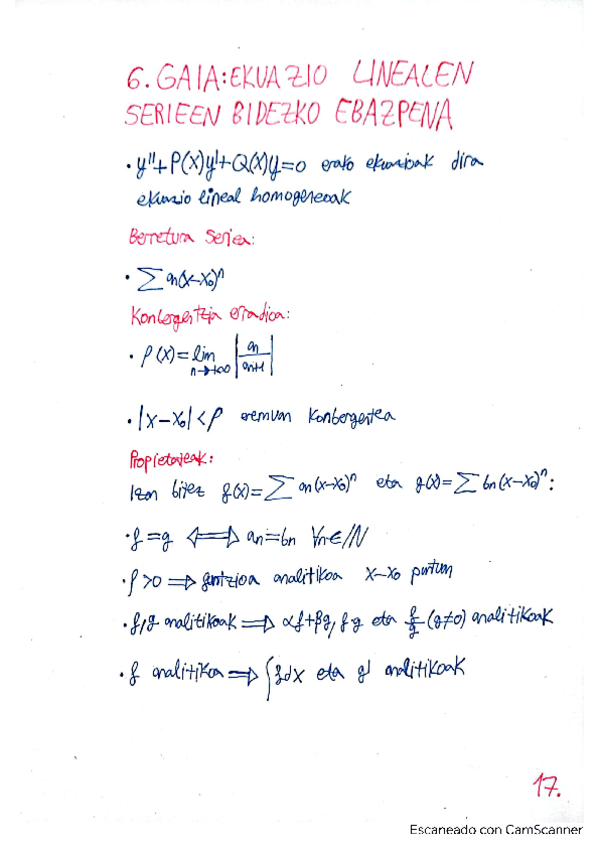 6. GAIA: EKUAZIO LINEALEN
SERIEEN BIDEZKO EBAZPENA
• y''+P(x)y'+Q(x)y=0 erako ekuazioak dira
ekuazio lineal homogeneoak
Berretura Seriea:
• ∑an(x-x₀)ⁿ
Konbergentzia erradioa:
• ρ(x)=lim n→+∞ |an/an+1|
• |x-x₀|<ρ eremuan konbergentea
Propietateak:
Izan bitez f(x)=∑an(x-x₀)ⁿ eta g(x)=∑bn(x-x₀)ⁿ:
• f=g ⇔ an=bn ∀n∈ℕ
• ρ>0 ⇒ funtzioa analitikoa x-x₀ puntuan
• f,g analitikoak ⇒ αf+βg, f·g eta f/g (g≠0) analitikoak
• f analitikoa ⇒ ∫fdx eta f' analitikoak
17.
Escaneado con CamScanner